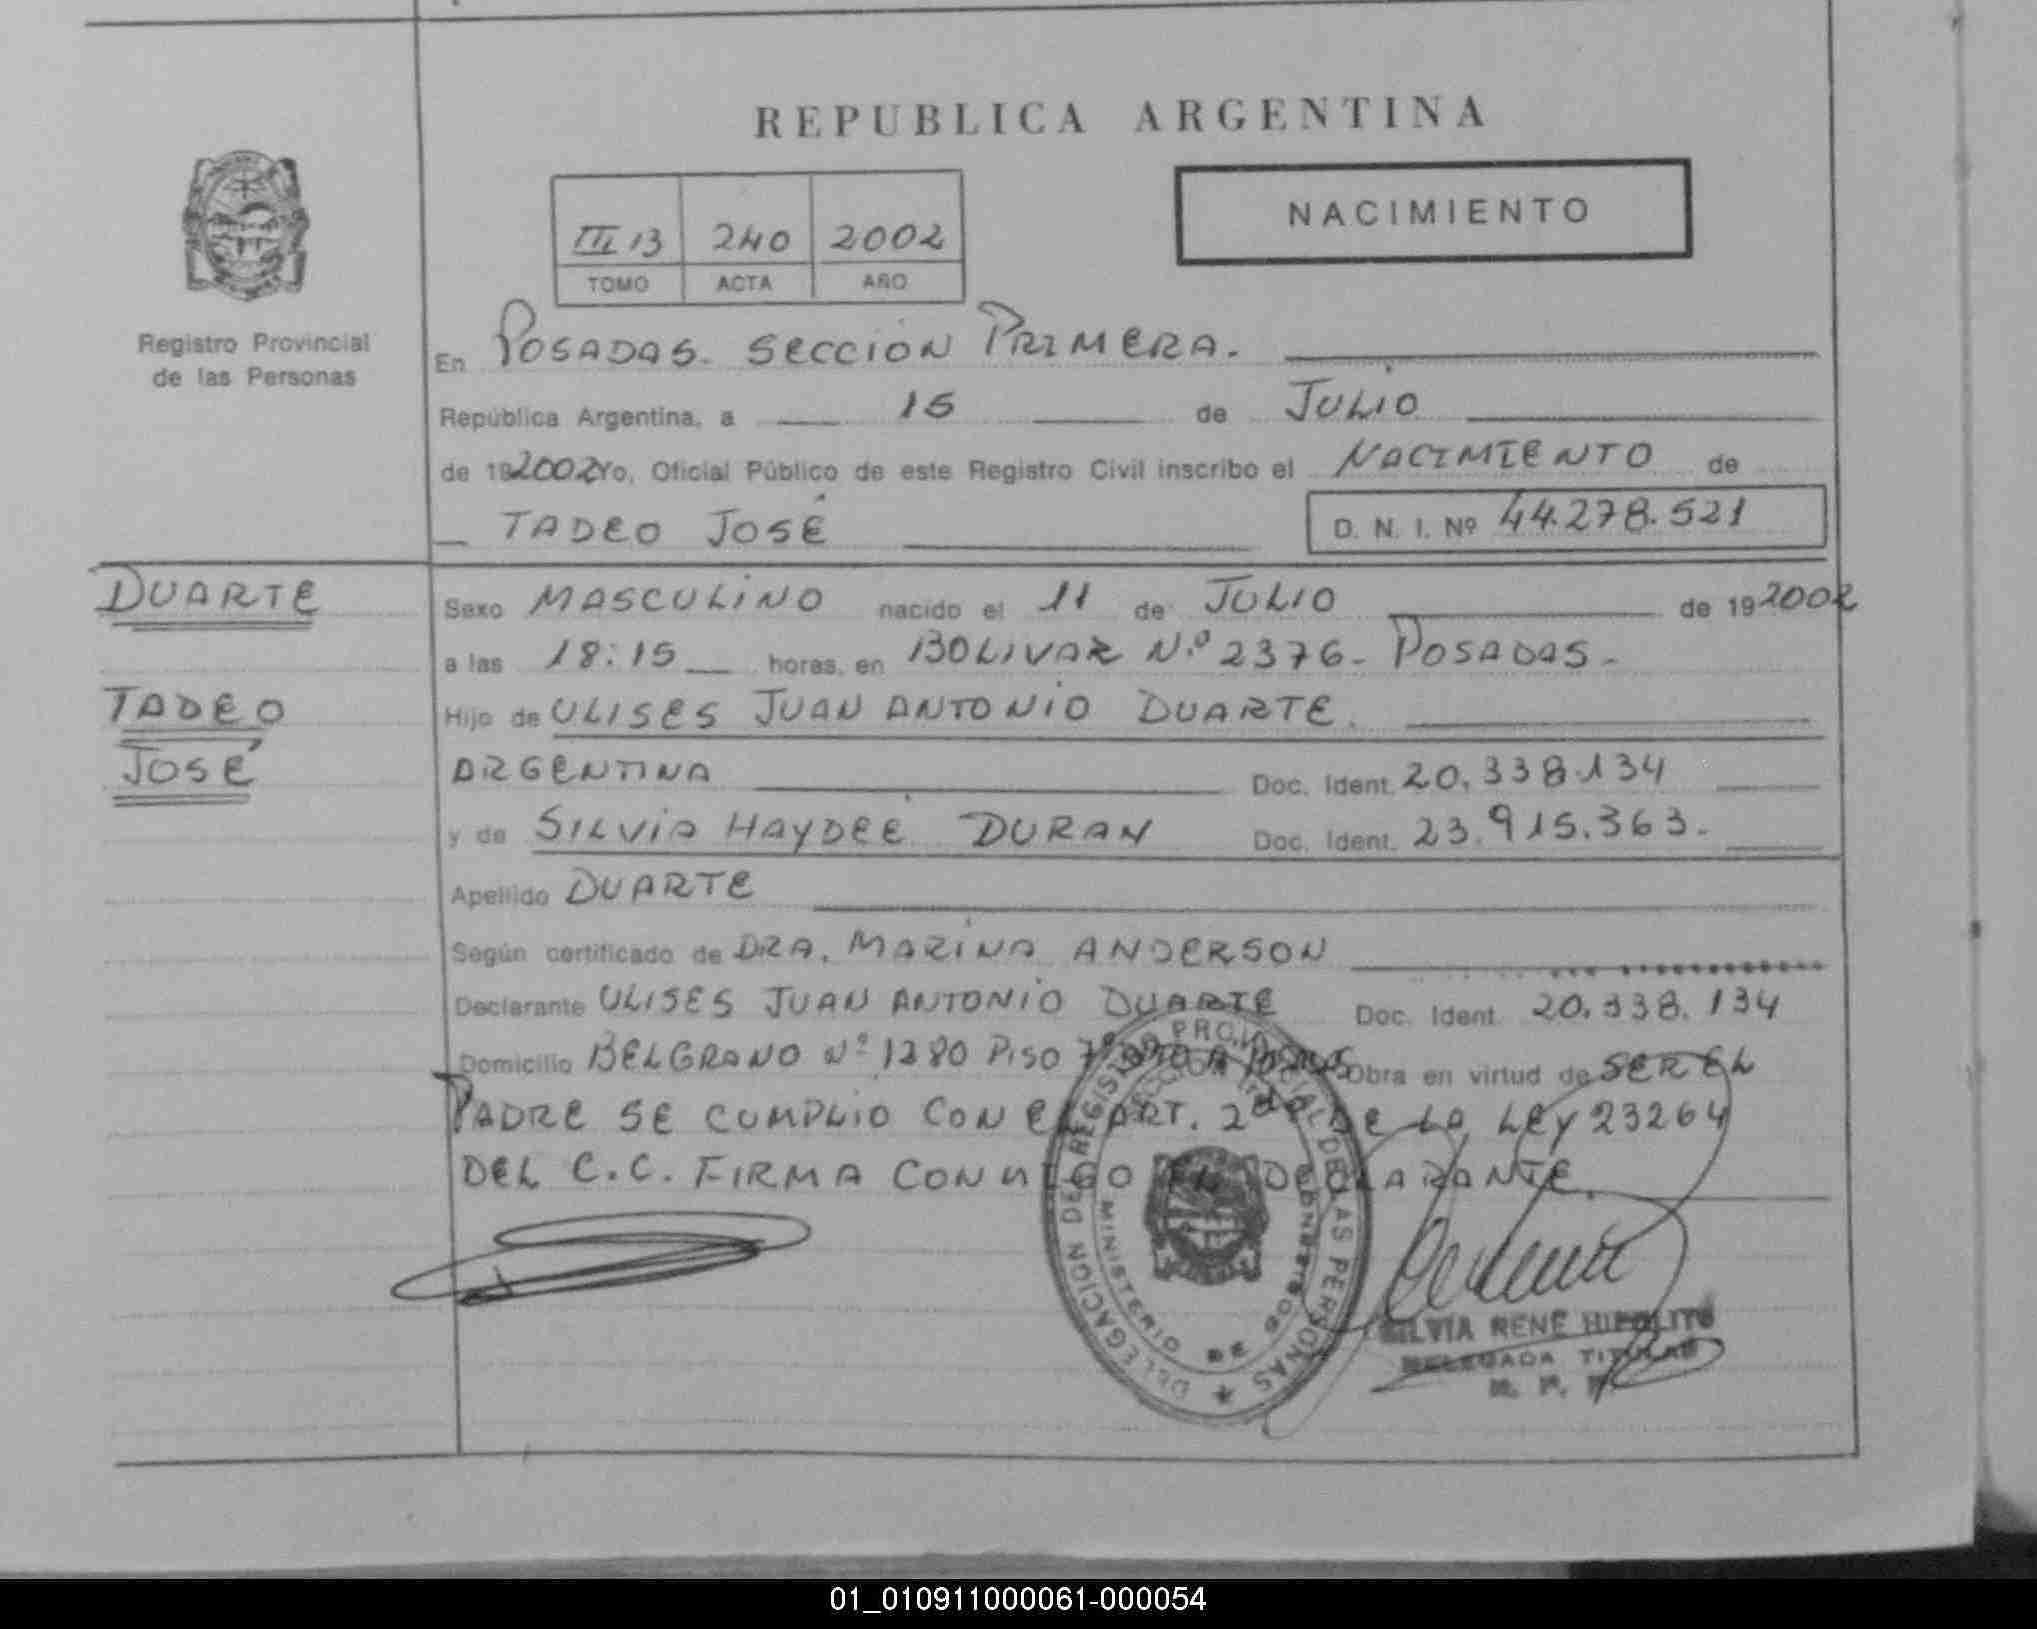 REPUBLICA ARGENTINA
NACIMIENTO
III 13 240 2002
TOMO ACTA AÑO
Registro Provincial
de las Personas
En POSADAS. SECCION PRIMERA.
República Argentina, a 15 de JULIO
de 192002 Yo, Oficial Público de este Registro Civil inscribo el NACIMIENTO de
TADEO JOSÉ D. N. I. Nº 44.278.521
DUARTE
TADEO
JOSÉ
Sexo MASCULINO nacido el 11 de JULIO de 19 2002
a las 18:15 horas, en BOLIVAR N.º 2376. POSADAS.
Hijo de ULISES JUAN ANTONIO DUARTE.
ARGENTINA Doc. Ident. 20.338.134
y de SILVIA HAYDEÉ DURAN Doc. Ident. 23.915.363.
Apellido DUARTE
Según certificado de DRA. MARINA ANDERSON
Declarante ULISES JUAN ANTONIO DUARTE Doc. Ident. 20.338.134
Domicilio BELGRANO Nº 1280 PISO 7º Obra en virtud de SER EL
PADRE SE CUMPLIO CON EL ART. 2do DE LA LEY 23264
DEL C.C. FIRMA CONMIGO EL DECLARANTE.
DELEGACION DEL REGISTRO PROVINCIAL DE LAS PERSONAS
MINISTERIO DE GOBIERNO
SILVIA RENE HIPOLITO
DELEGADA TITULAR
01_010911000061-000054